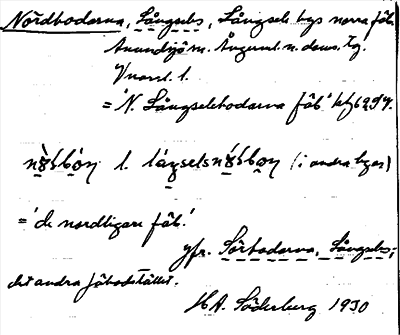 Nordbodarna, Långsele, Långsele bys norra fäb.
Anundsjö sn. Ångerml. n. doms. tg.
Vnorrl. l.
='N. Långselebodarna fäb'
l. (i andra byar)
='de nordligare fäb.'
jfr. Sörbodarna, Långsele,
det andra fäbodstället.
H.A. Söderberg 1930